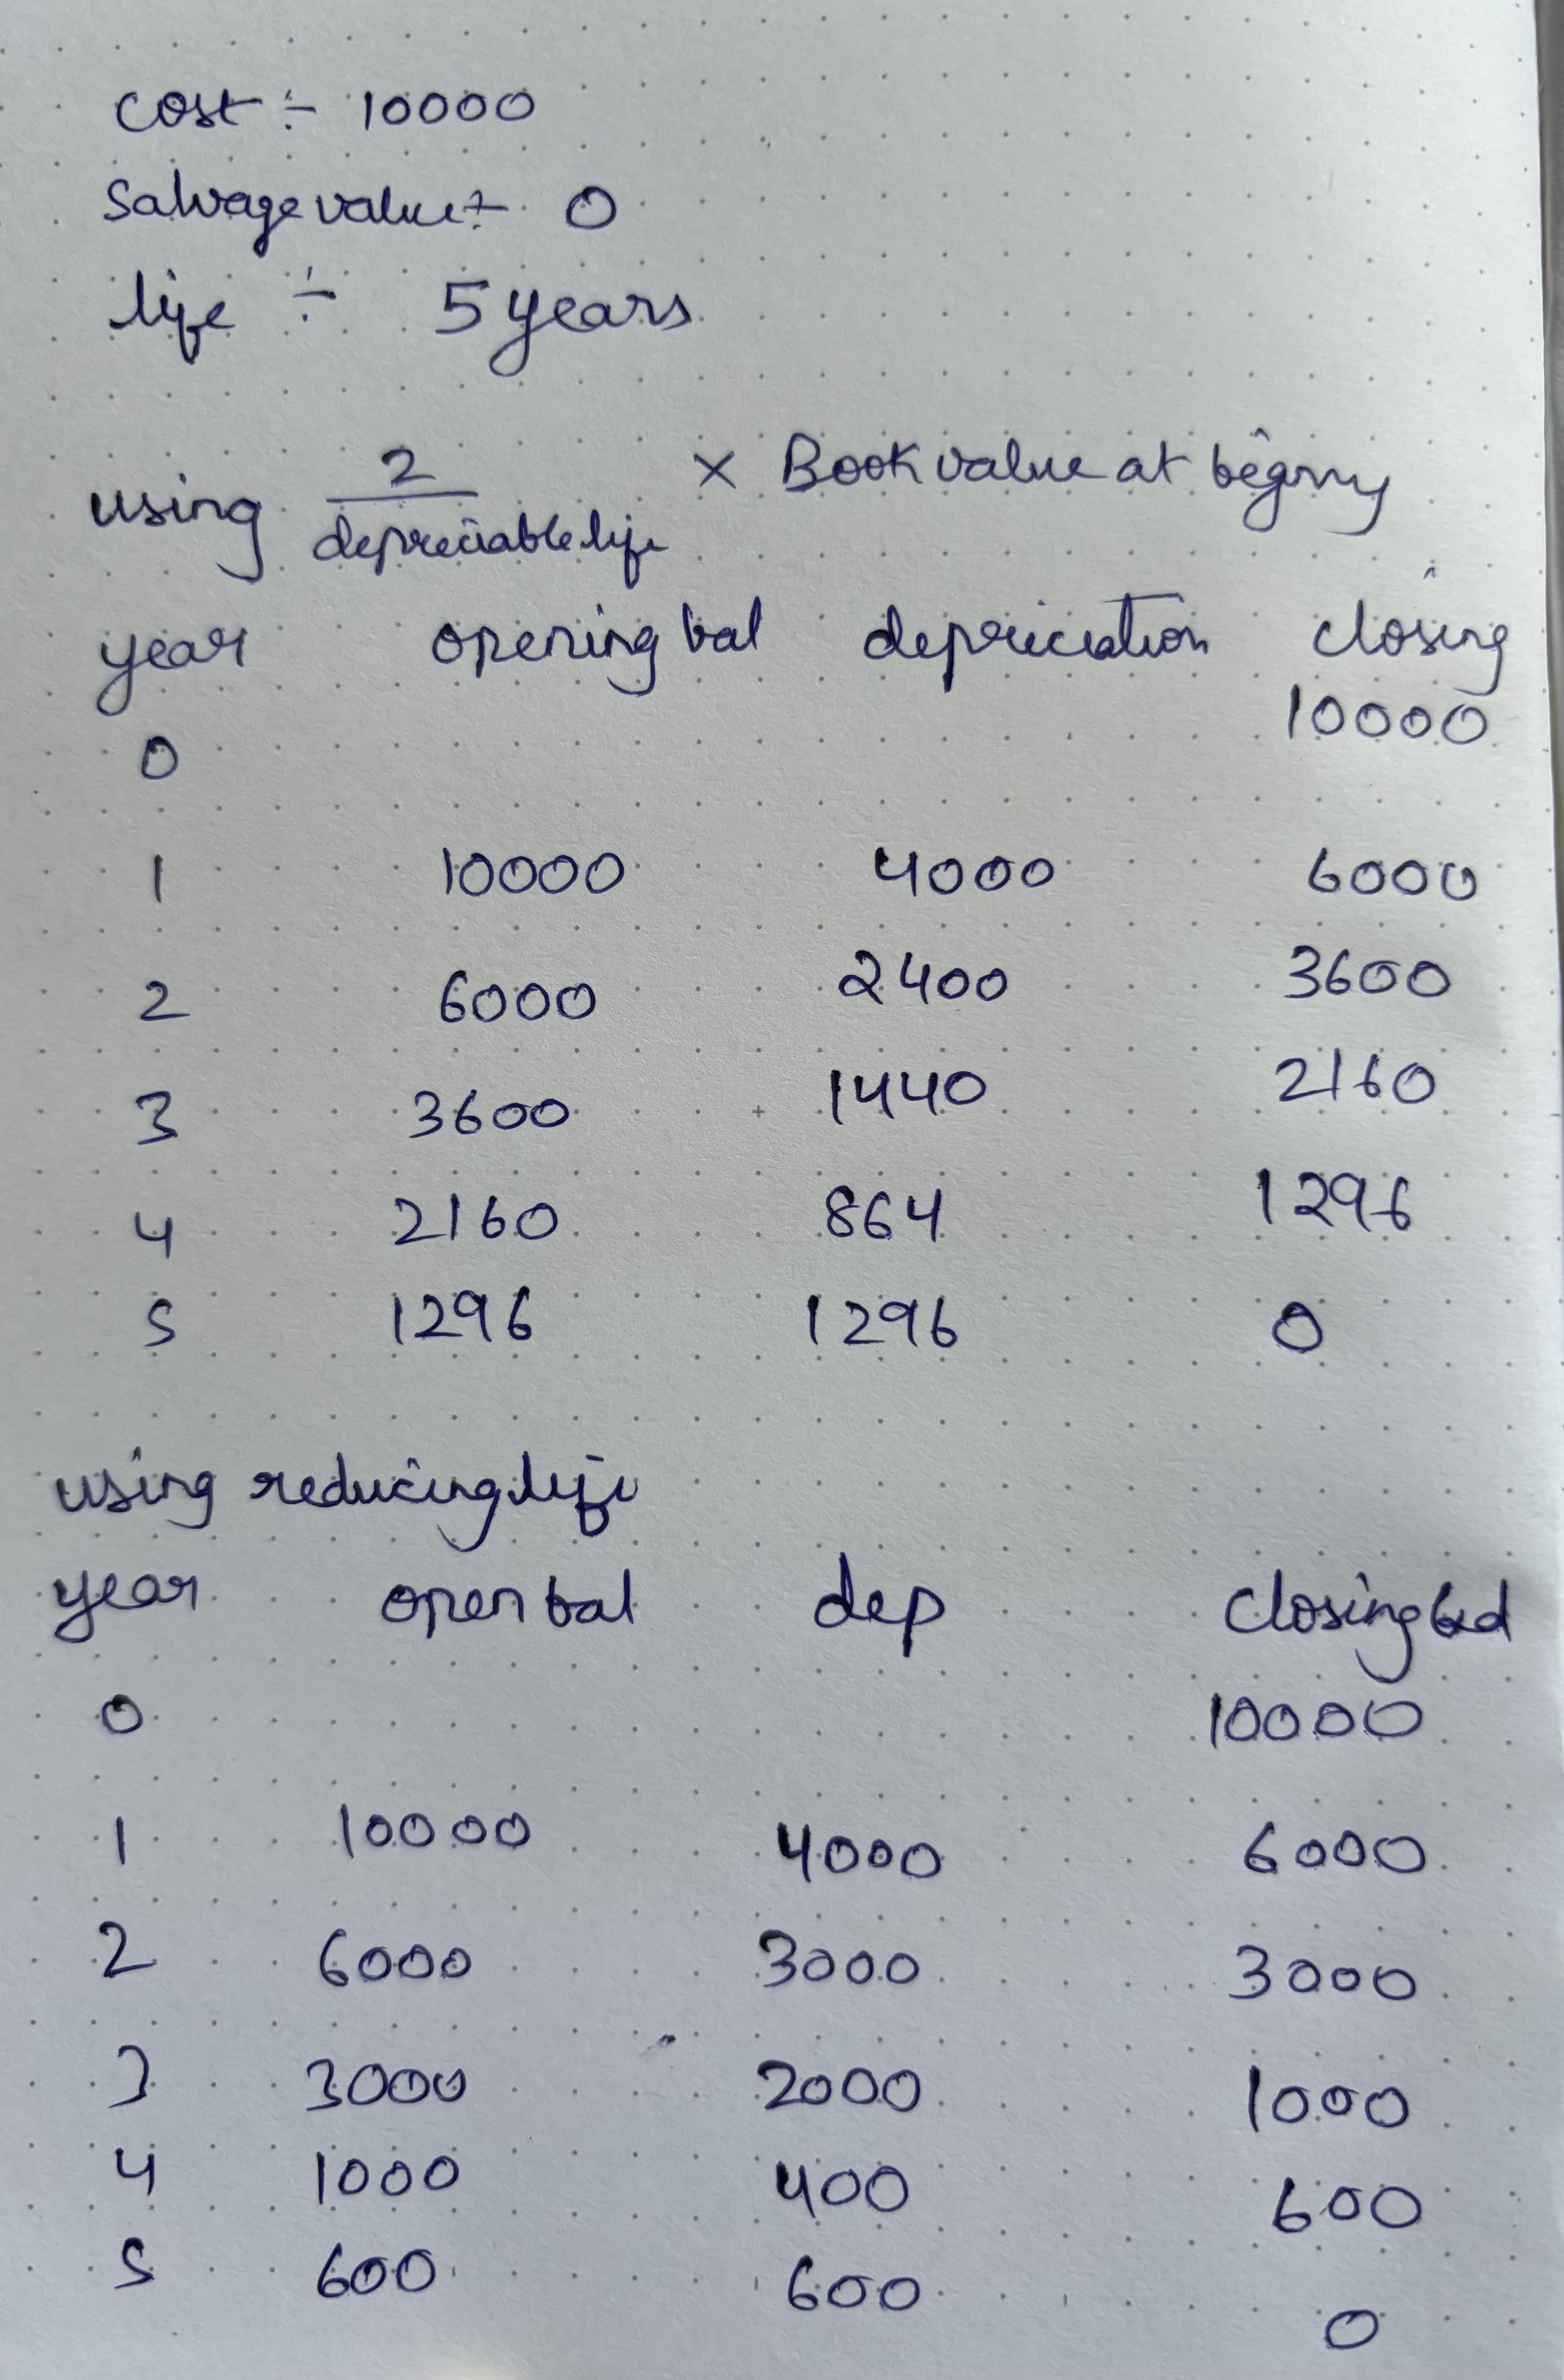 cost :- 10000
Salvage value :- 0
life :- 5 years
using 2 / depreciable life × Book value at
year opening bal depriciation closing
0 10000
1 10000 4000 6000
2 6000 2400 3600
3 3600 1440 2160
4 2160 864 1296
5 1296 1296 0
using reducing life
year open bal dep closing bal
0 10000
1 10000 4000 6000
2 6000 3000 3000
3 3000 2000 1000
4 1000 400 600
5 600 600 0